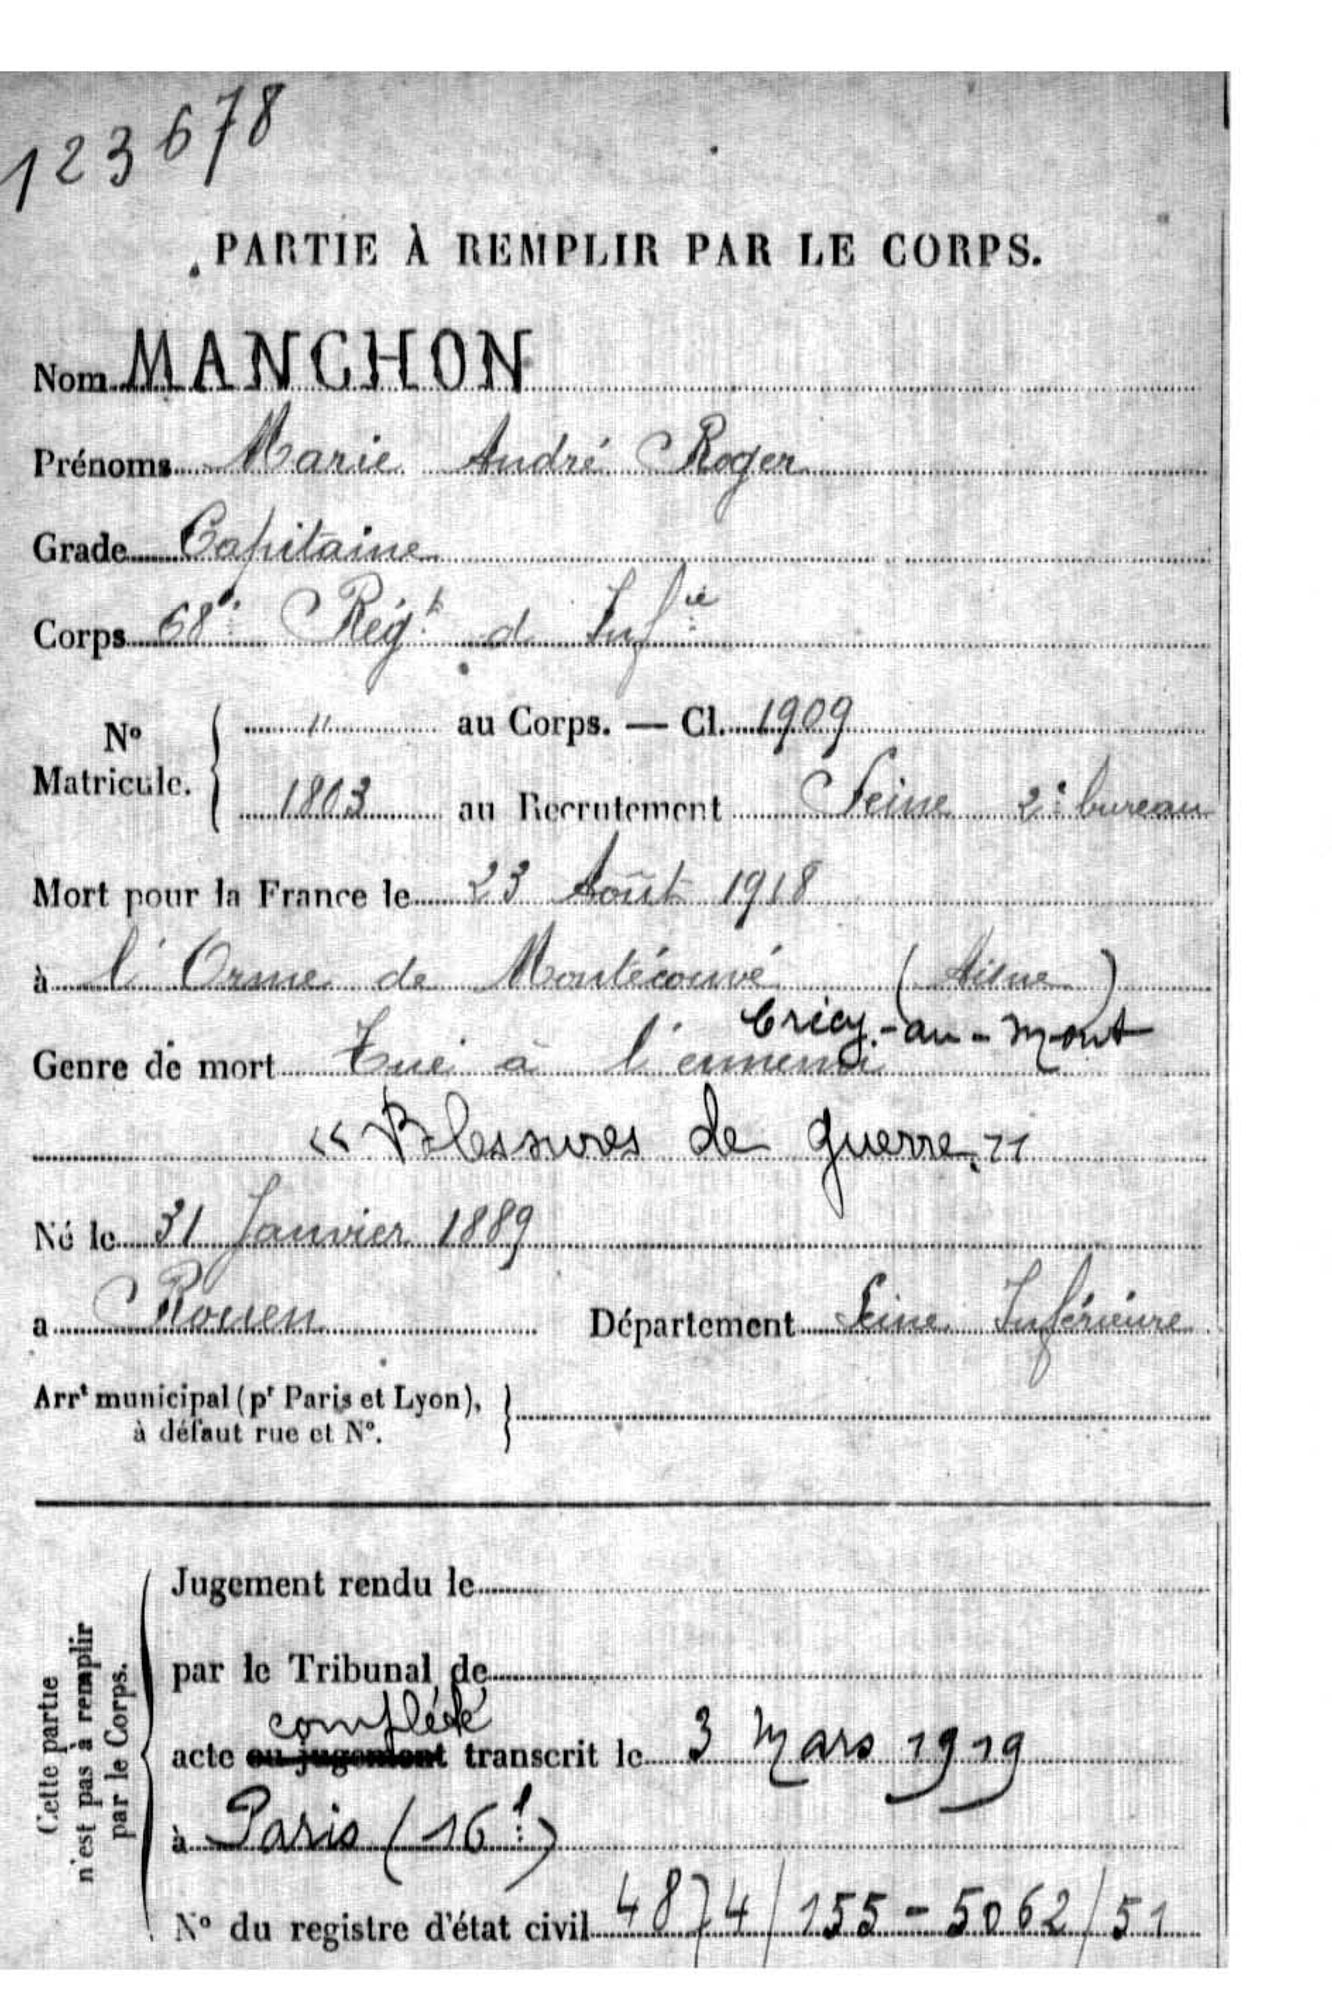 123678
PARTIE À REMPLIR PAR LE CORPS.
Nom MANCHON
Prénoms Marie André Roger
Grade Capitaine
Corps 68e Régt d' Infie
No Matricule. { " au Corps. — Cl. 1909
1803 au Recrutement Seine 2e bureau
Mort pour la France le 23 Août 1918
à l'Orme de Montécouvé (Aisne)
Crécy-au-Mont
Genre de mort Tué à l'ennemi
« Blessures de guerre. »
Né le 31 Janvier 1889
à Rouen Département Seine Inférieure
Arrt municipal (pr Paris et Lyon),
à défaut rue et No. }
Cette partie
n'est pas à remplir
par le Corps.
Jugement rendu le
par le Tribunal de
complété
acte ou jugement transcrit le 3 Mars 1919
à Paris (16e)
No du registre d'état civil 4874/155-5062/51